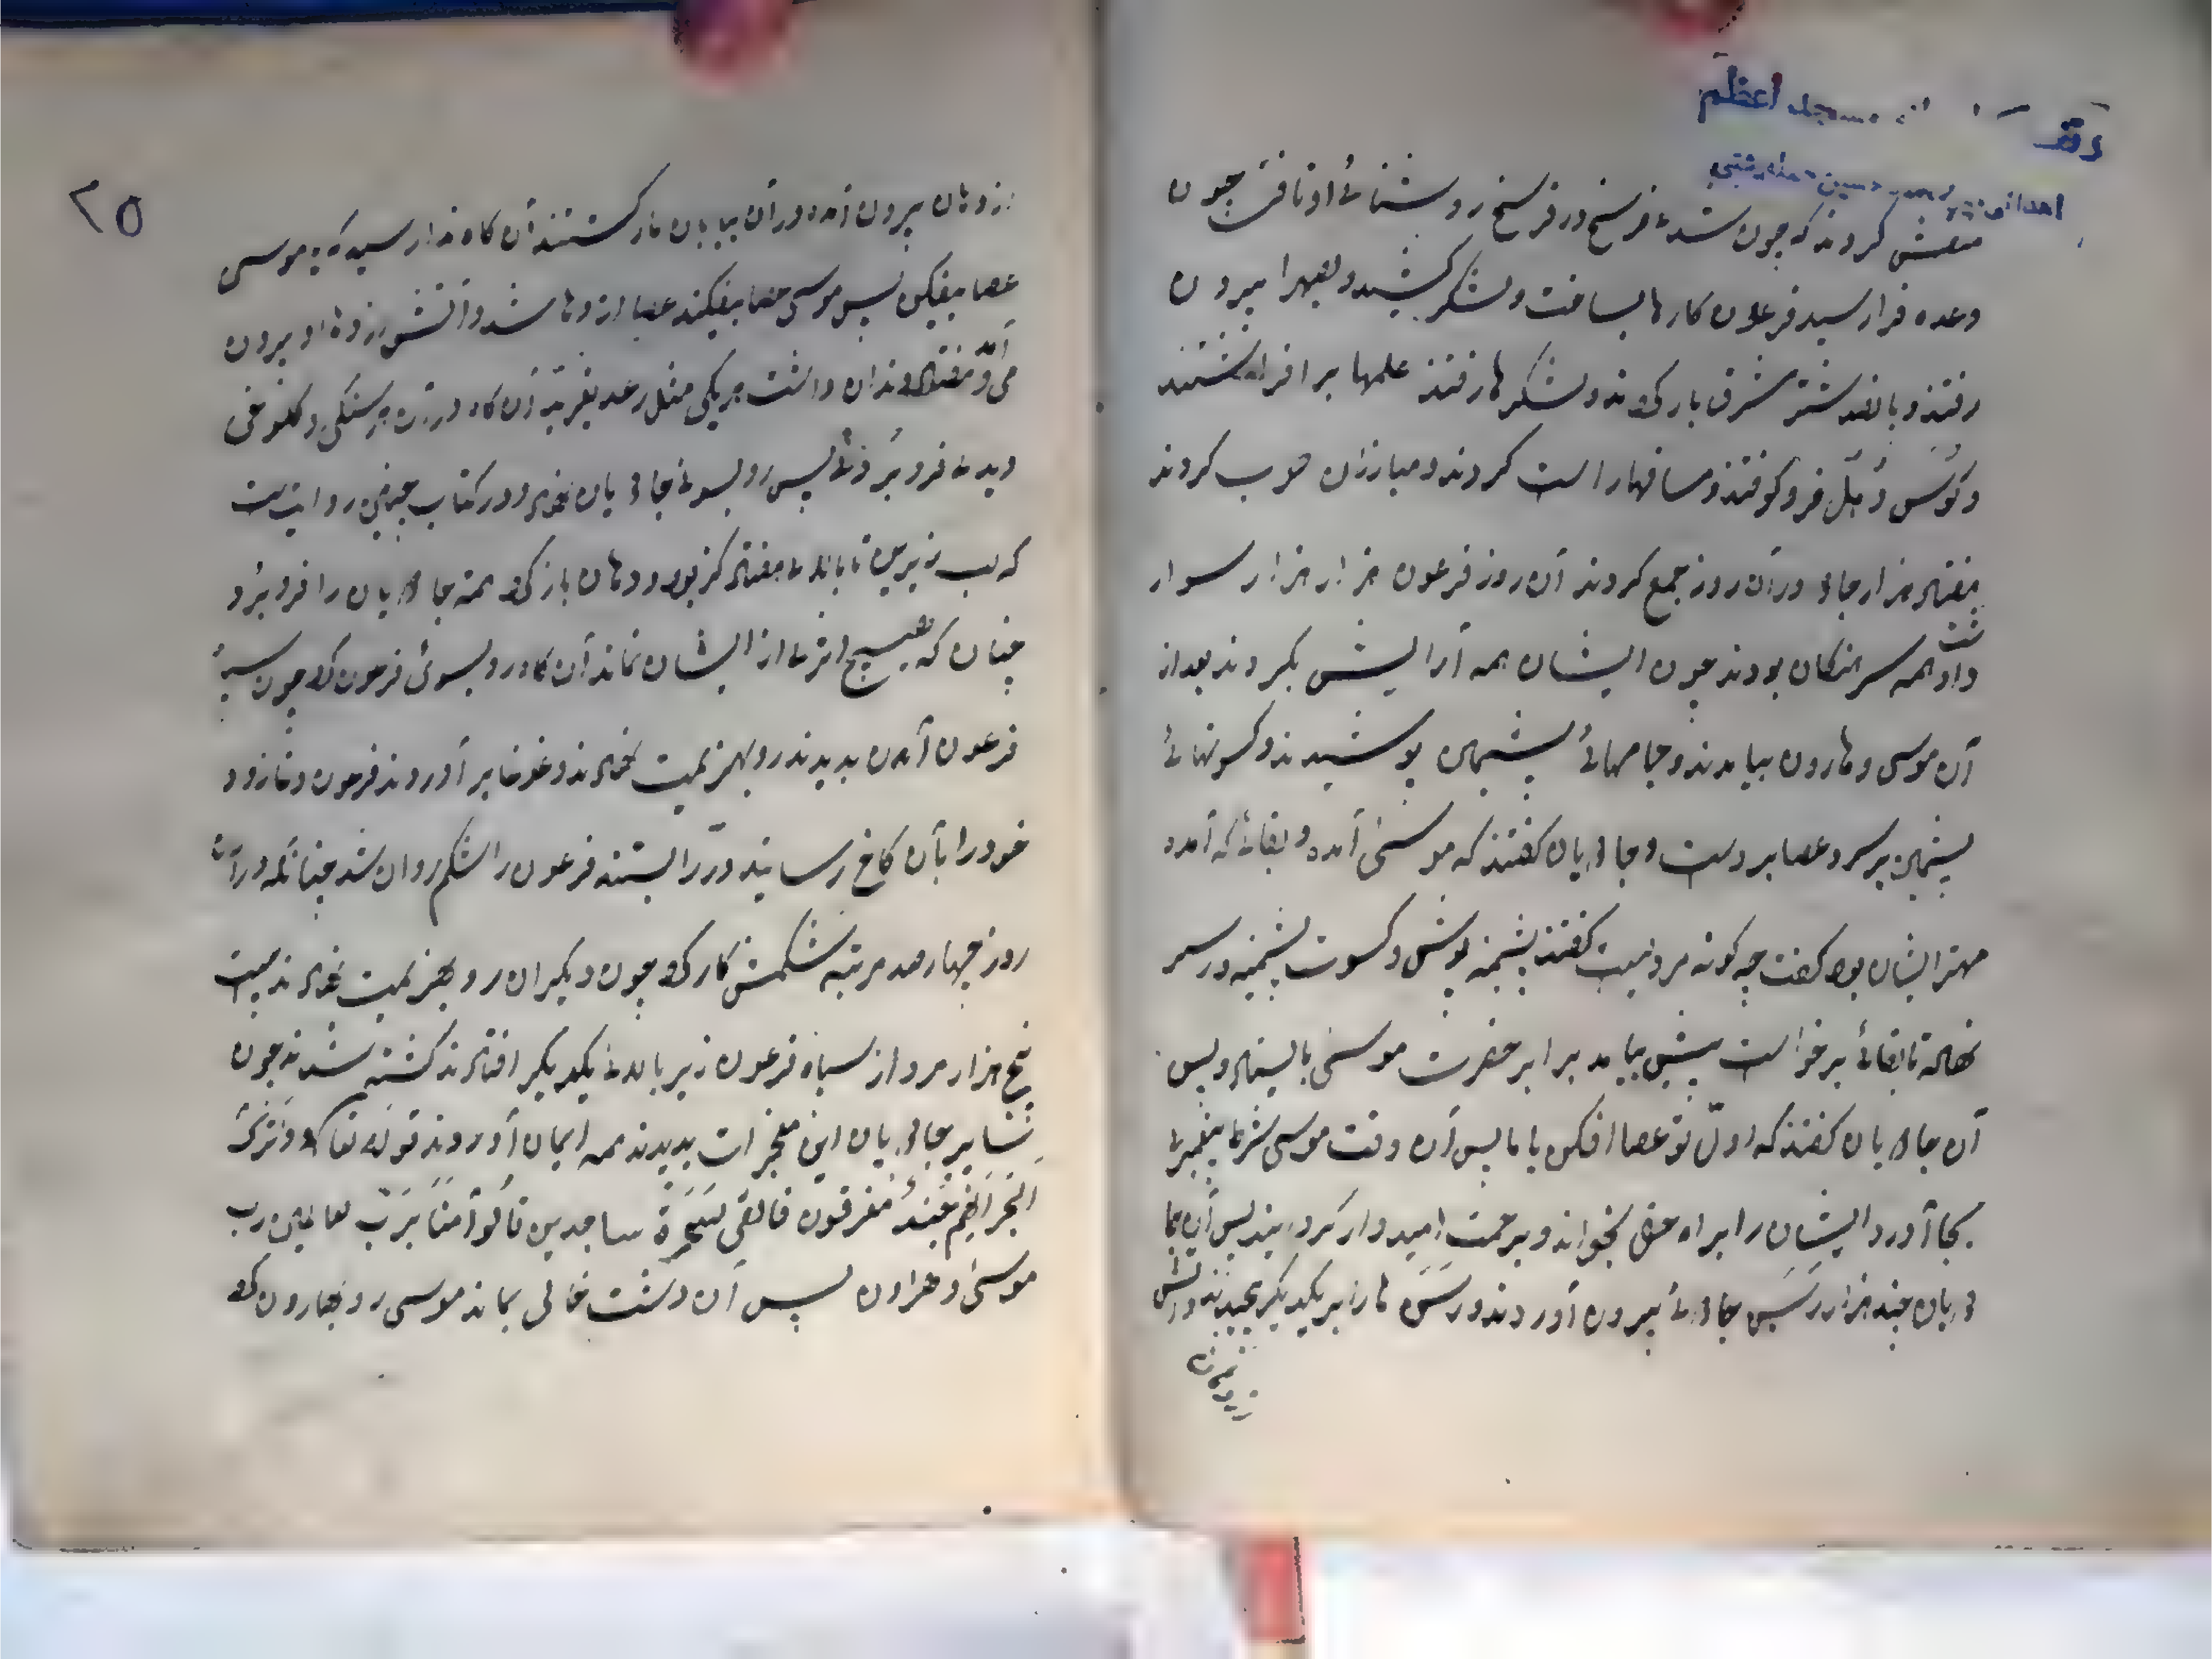 وقف مسجد اعظم
منقش کردند که چون شد فرسخ در فرسخ روشنائے او تافتے چون
وعده فرا رسید فرعون کارها بساخت و لشکر کشید و بصهرا بیرون
رفتند و پانصد شتر شرف بار کرد ند و لشکرها رفتند علمها بر افراشتند
و کوس و دُبّل فرو کوفتند و مصافها راست کردند و مبارزان کردند
هفتاد هزار جادو در آن روز جمع کردند آن روز فرعون هزار هزار سوار
داشت همه سرهنکان بودند چون ایشان همه آرایش بکردند بعد از
آن موسی و هارون بیامدند و جامهائے پشمین پوشیدند و کسوتهائے
پشمین بر سر و عصا بر دست و جادویان کفتند که موسیٰ آمد و بقائے که آمد و
مهتر ایشان بود کفت چه کونه مردیست کفتند پشمینه پوش و کسوت پشمینه در سر
نهاده تا بقائے برخواست پیش بیامد برابر حضرت موسیٰ بایستاد و پس
آن جادویان کفتند که اوّل تو عصا افکن یا ما پس آن وقت موسی شرط پیغمبرے
بجا آورد ایشان را براه حق بخواند و برحمت امیدوار کرد پس آن جا
دویان چند هزار رسن جادوئے بیرون آوردند و رسن ها را بر یکدیکر
۲۵
از دهان بیرون آمد و در آن بیابان مار کشتند آن کاه ندا رسید که یا موسی
عصا بیفکن پس موسی عصا بیفکند عصا اژدها شد و آتش از دهان او بیرون
می آمد و هفتاد دندان داشت هر یکی مثل رعد بغرید آن کاه هر سنکی و کلوخی
دیدے فرو بُردے پس رو بسوئے جادویان نهاد و در کتاب چنین روایت است
که لب زیرین تا بالائے هفتاد کز بود و دهان باز کرد همه جادویان را فرو بُرد
چنان که هیچ اثرے از ایشان نماند آن کاه رو بسوئ فرعون کرد چون سپاه
فرعون آن بدیدند رو بهزیمت نهادند و غوغا بر آوردند فرعون
خود را بآن کاخ رسانید و در را بستند فرعون را شکم روان شد چنانکه در آن
روز چهار صد مرتبه شکمش کار کرد چون دیکران رو بهزیمت نهادند بیست
پنج هزار مرد از سپاه فرعون زیر بالائے یکدیکر افتادند کشته شدند چون
جادویان این معجزات بدیدند همه ایمان آوردند قوله تعا وَاتْرُکِ
الْبَحْرَ اِنَّهُم جُندٌ مغرقون فالقی السَحَرَة ساجدین قالُوا آمنّا بِرَبّ العالمین رب
موسیٰ و هٰرون پس آن دشت خالی بماند موسی رو بهارون کرد